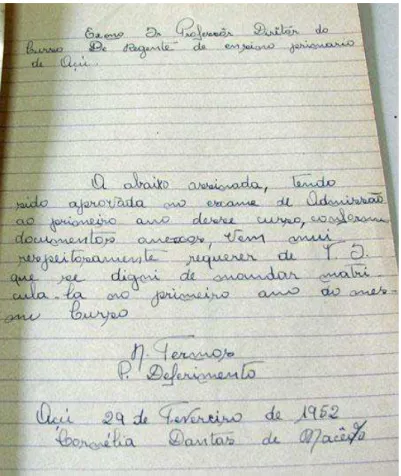 Exmo Sr Professôr Diretôr do
Curso De Regente de ensino primario
de Açú.
A abaixo assinada, tendo
sido aprovada no exame de Admissão
ao primeiro ano desse curso, conforme
documentos anexos, Vem mui
respeitosamente requerer de V. S.
que se digni de mandar matri-
cula-la no primeiro ano do mes-
mo Curso
N. Termos
P. Deferimento
Açú 29 de Fevereiro de 1952
Cornélia Dantas de Macêdo